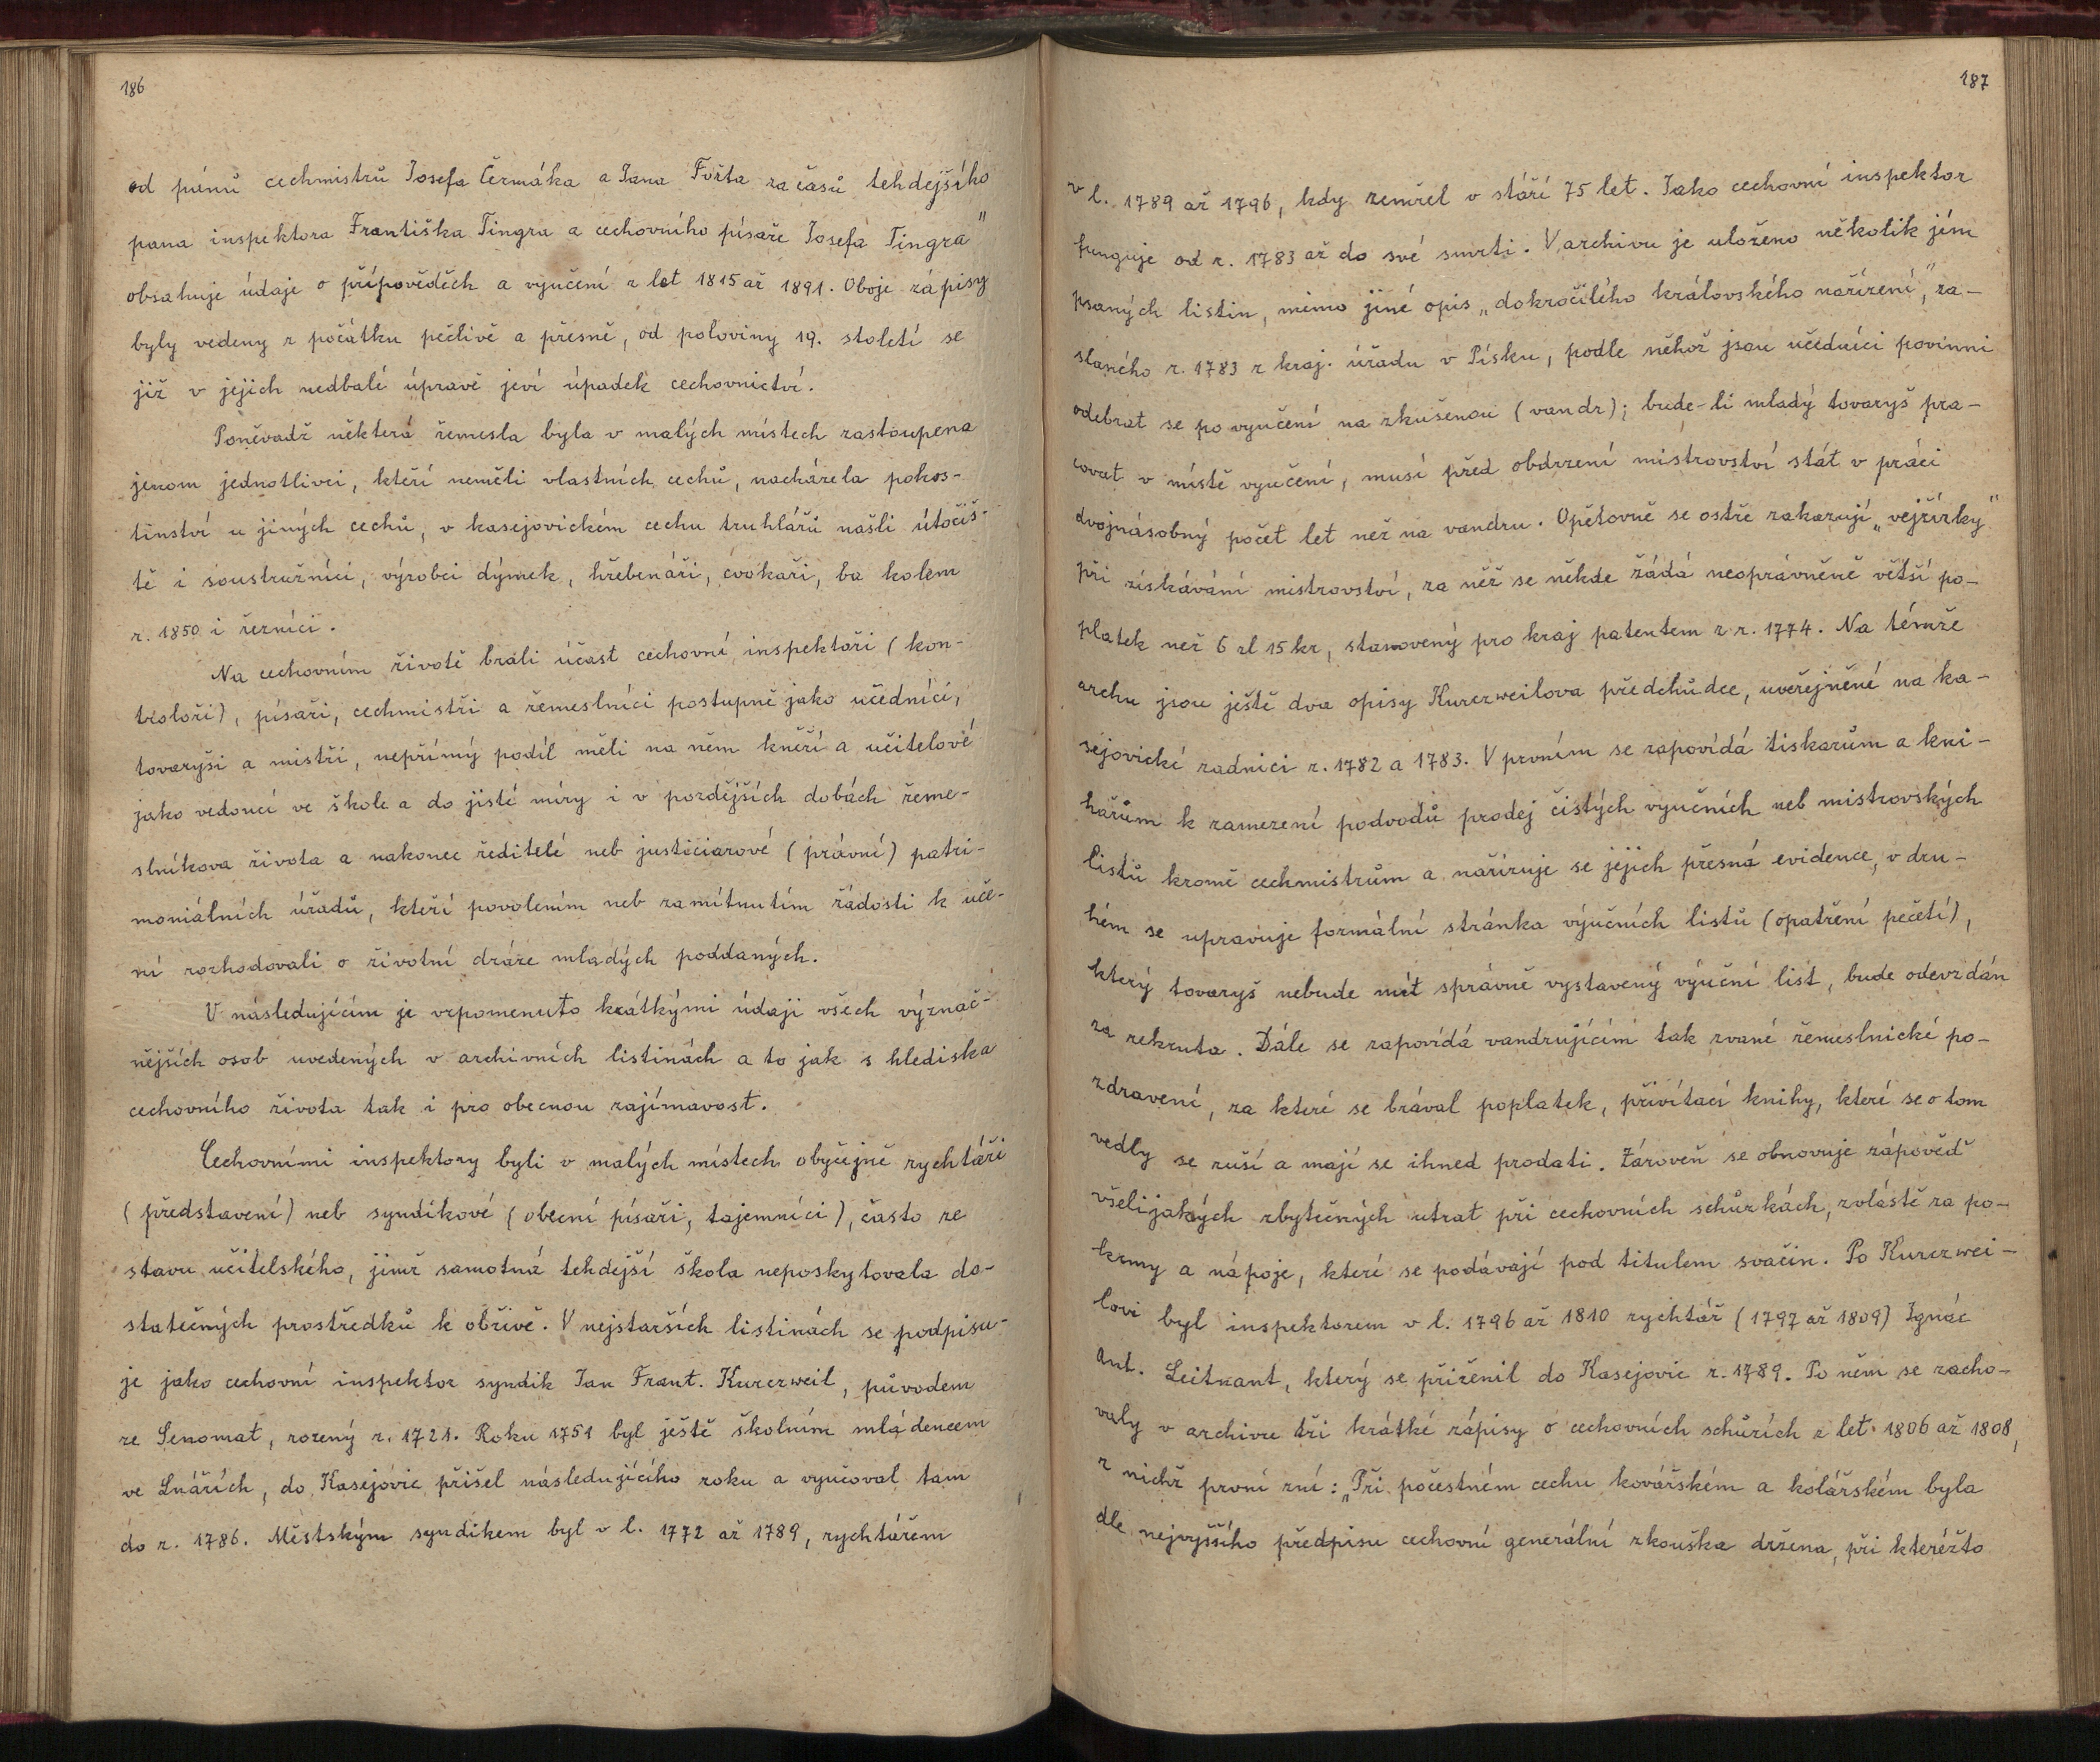 186
od pánů cechmistrů Josefa Čermáka a Jana Fořta za časů tehdejšího
pana inspektora Františka Tingra a cechovního písaře Josefa Tingra"
obsahuje údaje o přípovědích a vyučení z let 1815 až 1891. Oboje zápisy
byly vedeny z počátku pečlivě a přesně, od poloviny 19. století se
již v jejich nedbalé úpravě jeví úpadek cechovnictví.
Poněvadž některá řemesla byla v malých místech zastoupena
jenom jednotlivci, kteří neměli vlastních cechů, nacházela pohos-
tinství u jiných cechů, v kasejovickém cechu truhlářů našli útočiš-
tě i soustružníci, výrobci dýmek, hřebenáři, cvokaři, ba kolem
r. 1850 i řezníci.
Na cechovním životě brali účast cechovní inspektoři (kon-
troloři), písaři, cechmistři a řemeslníci postupně jako učedníci,
tovaryši a mistři, nepřímý podíl měli na něm kněží a učitelové
jako vedoucí ve škole a do jisté míry i v pozdějších dobách řeme-
slníkova života a nakonec ředitelé neb justiciarové (právní) patri-
moniálních úřadů, kteří povolením neb zamítnutím žádosti k uče-
ní rozhodovali o životní dráze mladých poddaných.
V následujícím je vzpomenuto krátkými údaji všech význač-
nějších osob uvedených v archivních listinách a to jak s hlediska
cechovního života tak i pro obecnou zajímavost.
Cechovními inspektory byli v malých místech obyčejně rychtáři
(představení) neb syndikové (obecní písaři, tajemníci), často ze
stavu učitelského, jimž samotná tehdejší škola neposkytovala do-
statečných prostředků k obživě. V nejstarších listinách se podpisu-
je jako cechovní inspektor syndik Jan Frant. Kurczweil, původem
ze Senomat, rozený r. 1721. Roku 1751 byl ještě školním mládencem
ve Lnářích, do Kasejovic přišel následujícího roku a vyučoval tam
do r. 1786. Městským syndikem byl v l. 1772 až 1789, rychtářem
187
v l. 1789 až 1796, kdy zemřel v stáří 75 let. Jako cechovní inspektor
funguje od r. 1783 až do své smrti. V archivu je uloženo několik jím
psaných listin, mimo jiné opis „dokročilého královského nařízení", za-
slaného r. 1783 z kraj. úřadu v Písku, podle něhož jsou učedníci povinni
odebrat se po vyučení na zkušenou (vandr); bude-li mladý tovaryš pra-
covat v místě vyučení, musí před obdrzení mistrovství stát v práci
dvojnásobný počet let než na vandru. Opětovně se ostře zakazují „vejřízky"
při získávání mistrovství, za něž se někde žádá neoprávněně větší po-
platek než 6 zl 15 kr, stanovený pro kraj patentem z r. 1774. Na témže
archu jsou ještě dva opisy Kurczweilova předchůdce, uveřejněné na ka-
sejovické radnici r. 1782 a 1783. V prvním se zapovídá tiskařům a kni-
hařům k zamezení podvodů prodej čistých vyučních neb mistrovských
listů kromě cechmistrům a nařizuje se jejich přesná evidence, v dru-
hém se upravuje formální stránka výučních listů (opatření pečetí),
který tovaryš nebude mít správně vystavený výuční list, bude odevzdán
za rekruta. Dále se zapovídá vandrujícím tak zvané řemeslnické po-
zdravení, za které se brával poplatek, přivítací knihy, které se o tom
vedly se ruší a mají se ihned prodati. Zároveň se obnovuje zápověď
všelijakých zbytečných útrat při cechovních schůzkách, zvláště za po-
krmy a nápoje, které se podávají pod titulem svačin. Po Kurczwei-
lovi byl inspektorem v l. 1796 až 1810 rychtář (1797 až 1809) Ignác
Ant. Leitnant, který se přiženil do Kasejovic r. 1789. Po něm se zacho-
valy v archivu tři krátké zápisy o cechovních schůzích z let 1806 až 1808,
z nichž první zní: „Při počestném cechu kovářském a kolářském byla
dle nejvyššího předpisu cechovní generální zkouška držena, při kteréžto